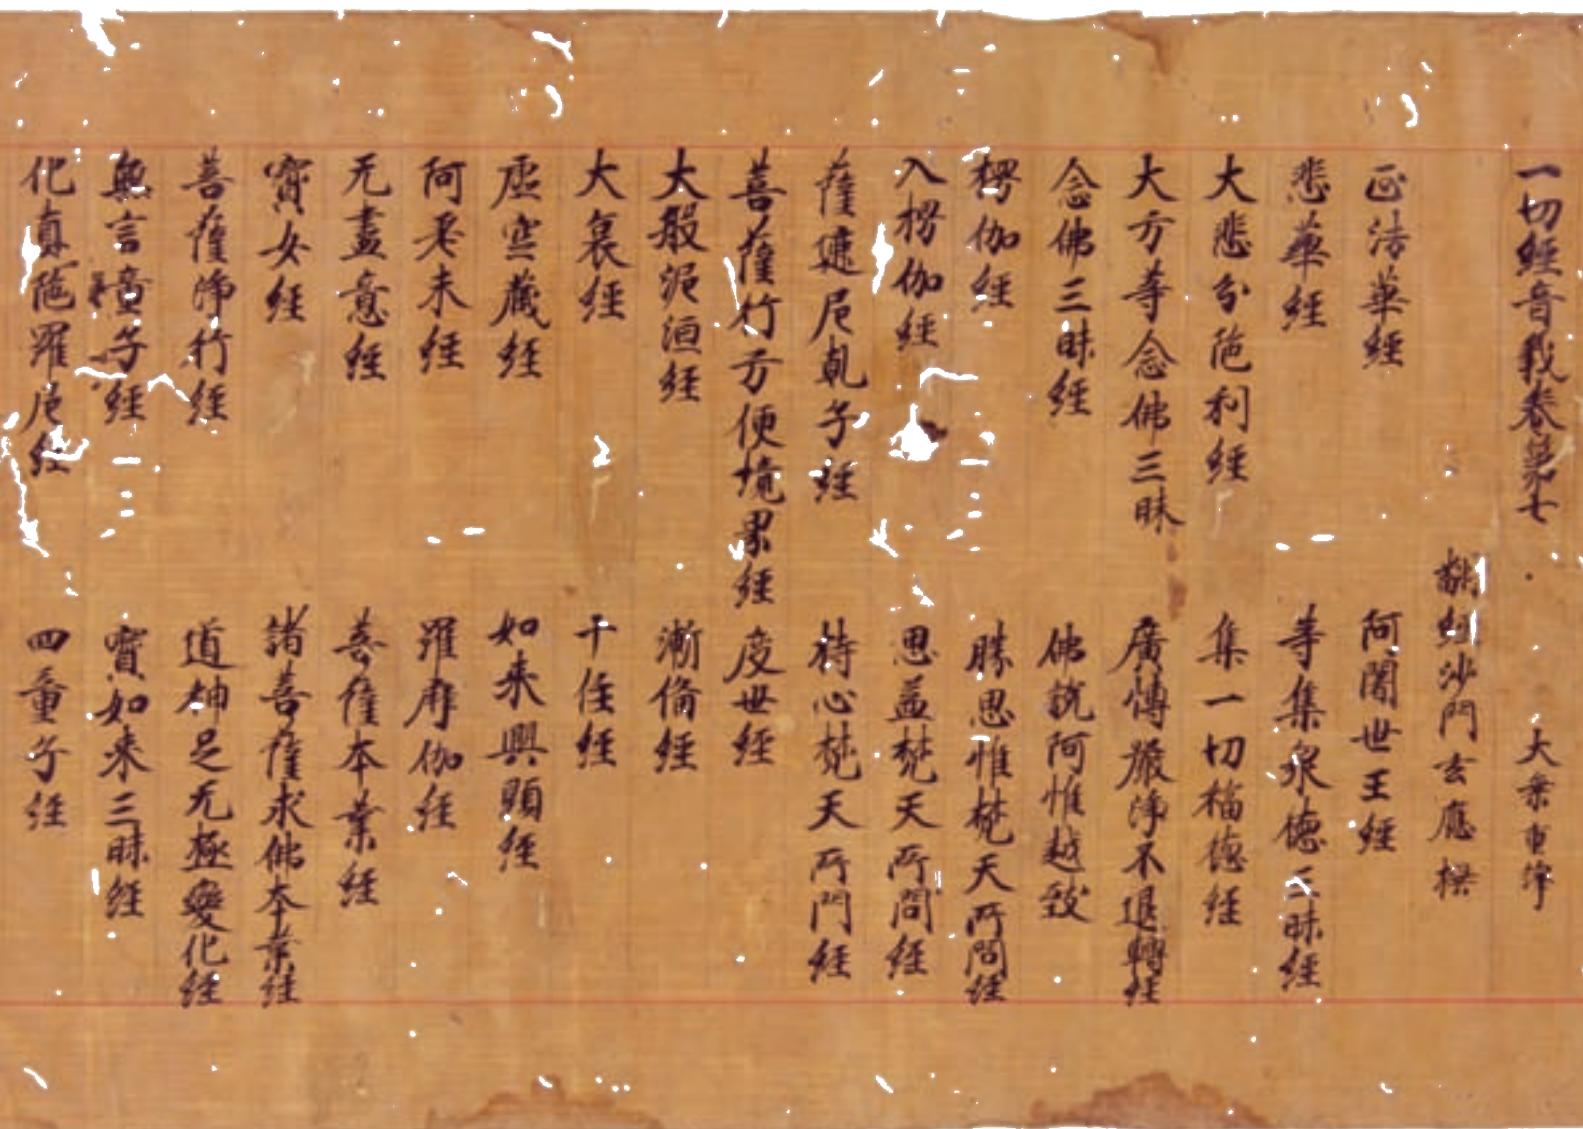 一切經音義卷第七 大乘重譯
翻經沙門玄應撰
正法華經 阿闍世王經
悲華經 等集衆德三昧經
大悲分陁利經 集一切福德經
大方等念佛三昧 廣博嚴淨不退轉經
念佛三昧經 佛說阿惟越致
楞伽經 勝思惟梵天所問經
入楞伽經 思益梵天所問經
薩遮尼乹子經 持心梵天所門經
菩薩行方便境界經 度世經
大般泥洹經 漸備經
大哀經 十住經
虛空藏經 如來興顯經
阿差末經 羅摩伽經
无盡意經 菩薩本業經
寶女經 諸菩薩求佛本業經
菩薩淨行經 道神足无極變化經
無言童子經 寶如來三昧經
化真陁羅尼經 四童子經